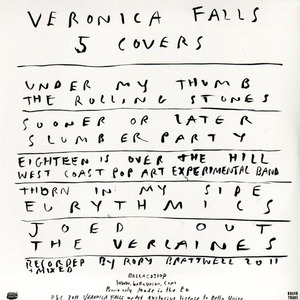 VERONICA FALLS
5 COVERS
UNDER MY THUMB
THE ROLLING STONES
SOONER OR LATER
SLUMBER PARTY
EIGHTEEN IS OVER THE HILL
WEST COAST POP ART EXPERIMENTAL BAND
THORN IN MY SIDE
EURYTHMICS
JOED OUT
THE VERLAINES
RECORDED + MIXED BY RORY BRATTWELL 2011
www.bellaunion.com
Made in the EU
P&C 2011 VERONICA FALLS under exclusive license to Bella Union
ROUGH TRADE